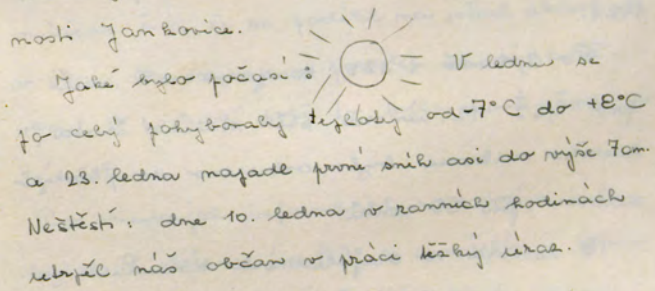 nosti Jankovice.
Jaké bylo počasí: V lednu se
po celý pohybovaly teploty od -7°C do +8°C
a 23. ledna napadl první sníh asi do výše 7cm.
Neštěstí: dne 10. ledna v ranních hodinách
utrpěl náš občan v práci těžký úraz.